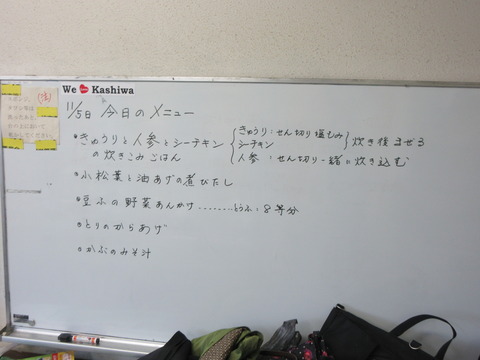 We Kashiwa
(注)
11/5日 今日のメニュー
・きゅうりと人参とシーチキン
の炊きこみごはん
きゅうり:せん切り塩もみ
シーチキン
炊き後まぜる
人参:せん切り一緒に炊き込む
・小松葉と油あげの煮びたし
・豆ふの野菜あんかけ………とうふ:8等分
・とりのからあげ
・かぶのみそ汁